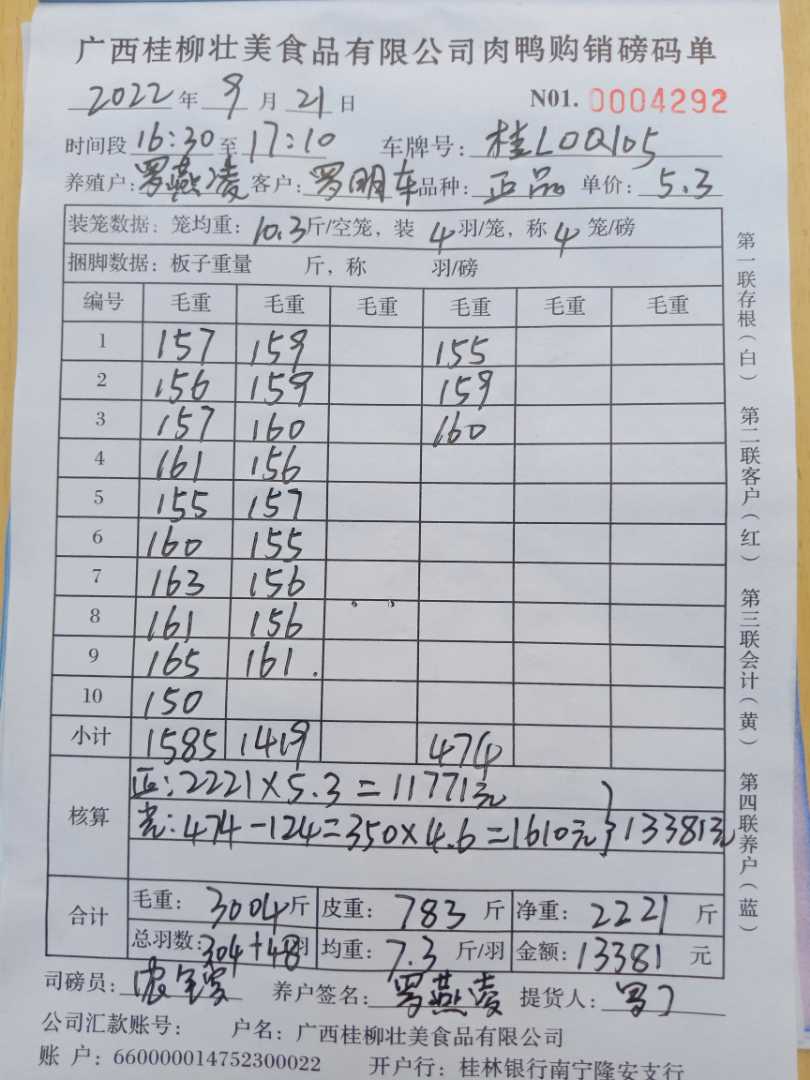 广西桂柳壮美食品有限公司肉鸭购销磅码单
2022年9月21日 N01. 0004292
时间段 16:30至17:10 车牌号: 桂L0Q105
养殖户:罗燕凌 客户:罗明车 品种:正品 单价:5.3
装笼数据: 笼均重:10.3斤/空笼, 装4羽/笼, 称4笼/磅
捆脚数据: 板子重量 斤, 称 羽/磅
编号 毛重 毛重 毛重 毛重 毛重 毛重
1 157 159 155
2 156 159 159
3 157 160 160
4 161 156
5 155 157
6 160 155
7 163 156
8 161 156
9 165 161.
10 150
小计 1585 1419 474
核算 正:2221×5.3=11771元
474-124=350×4.6=1610元 } 13381元
合计 毛重: 3004斤 皮重: 783斤 净重: 2221斤
总羽数:304+48羽 均重: 7.3斤/羽 金额: 13381元
司磅员: 养户签名: 罗燕凌 提货人: 罗
公司汇款账号: 户名: 广西桂柳壮美食品有限公司
账 户: 660000014752300022 开户行: 桂林银行南宁隆安支行
第一联存根(白) 第二联客户(红) 第三联会计(黄) 第四联养户(蓝)